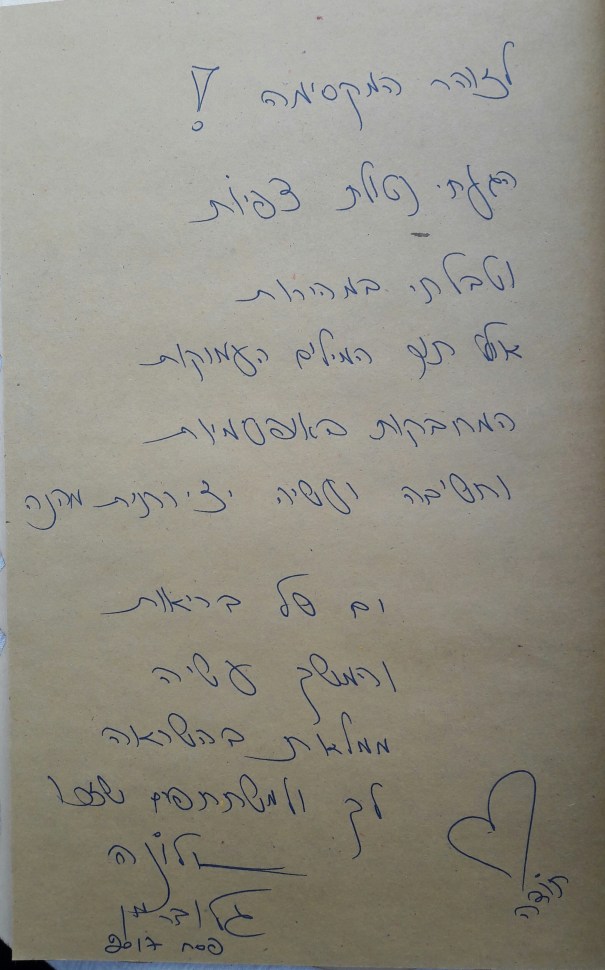 לזוהר המקסימה !
הגעתי נטולת צפיות
וטבלתי במהירות
אל תוך המילים העמוקות
המחבקות באופטמיות
וחשיבה ועשיה יצירתית מהנה
ים של בריאות
והמשך עשיה
ממלאת בהשראה
לך ולמשתתפים
תודה
פסח 2017